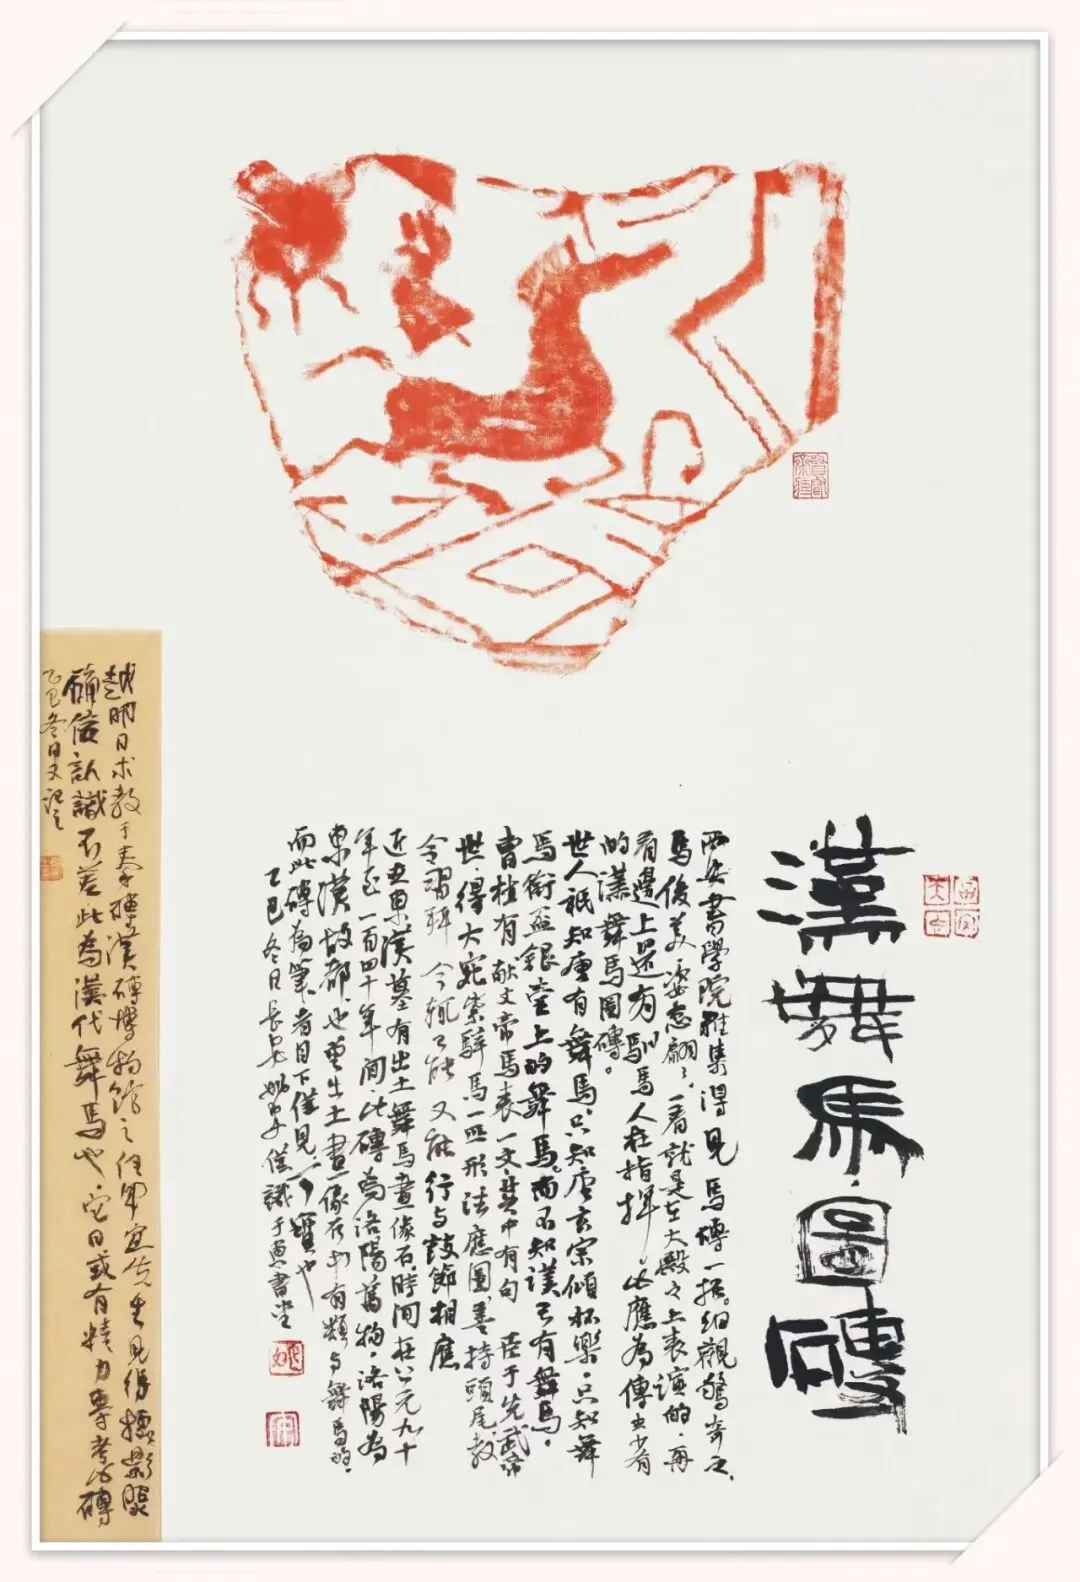 漢舞馬圖磚
西安書學院雅集得見馬磚一拓。細觀驚奇之，
馬俊美，姿态翩翩，一看就是在大殿之上表演的，再
看邊上還有馴馬人在指揮，此應為傳世少有
的漢舞馬圖磚。
世人祇知唐有舞馬，只知唐玄宗傾杯樂，只知舞
馬銜盃銀壺上的舞馬。而不知漢已有舞馬，
曹植有献文帝馬表一文，其中有句 臣于先武帝
世，得大宛紫騂馬一匹，形法應圖，善持頭尾，教
令習拜，今輒已能，又能行与鼓節相應
近五里漢墓有出土舞馬畫像石，時間在公元九十
年至一百四十年間，此磚為洛陽舊物，洛陽為
東漢故都，也曾出土畫像石中有類与舞馬的，
而此磚為筆者目下僅見，可寶也
乙巳冬日長安 僅識于 書堂
越明日求教于秦磚漢磚博物館之 宜先生見得 
確信認識不差此為漢代舞馬也，它日或有精力專考此磚
乙巳冬日又記之